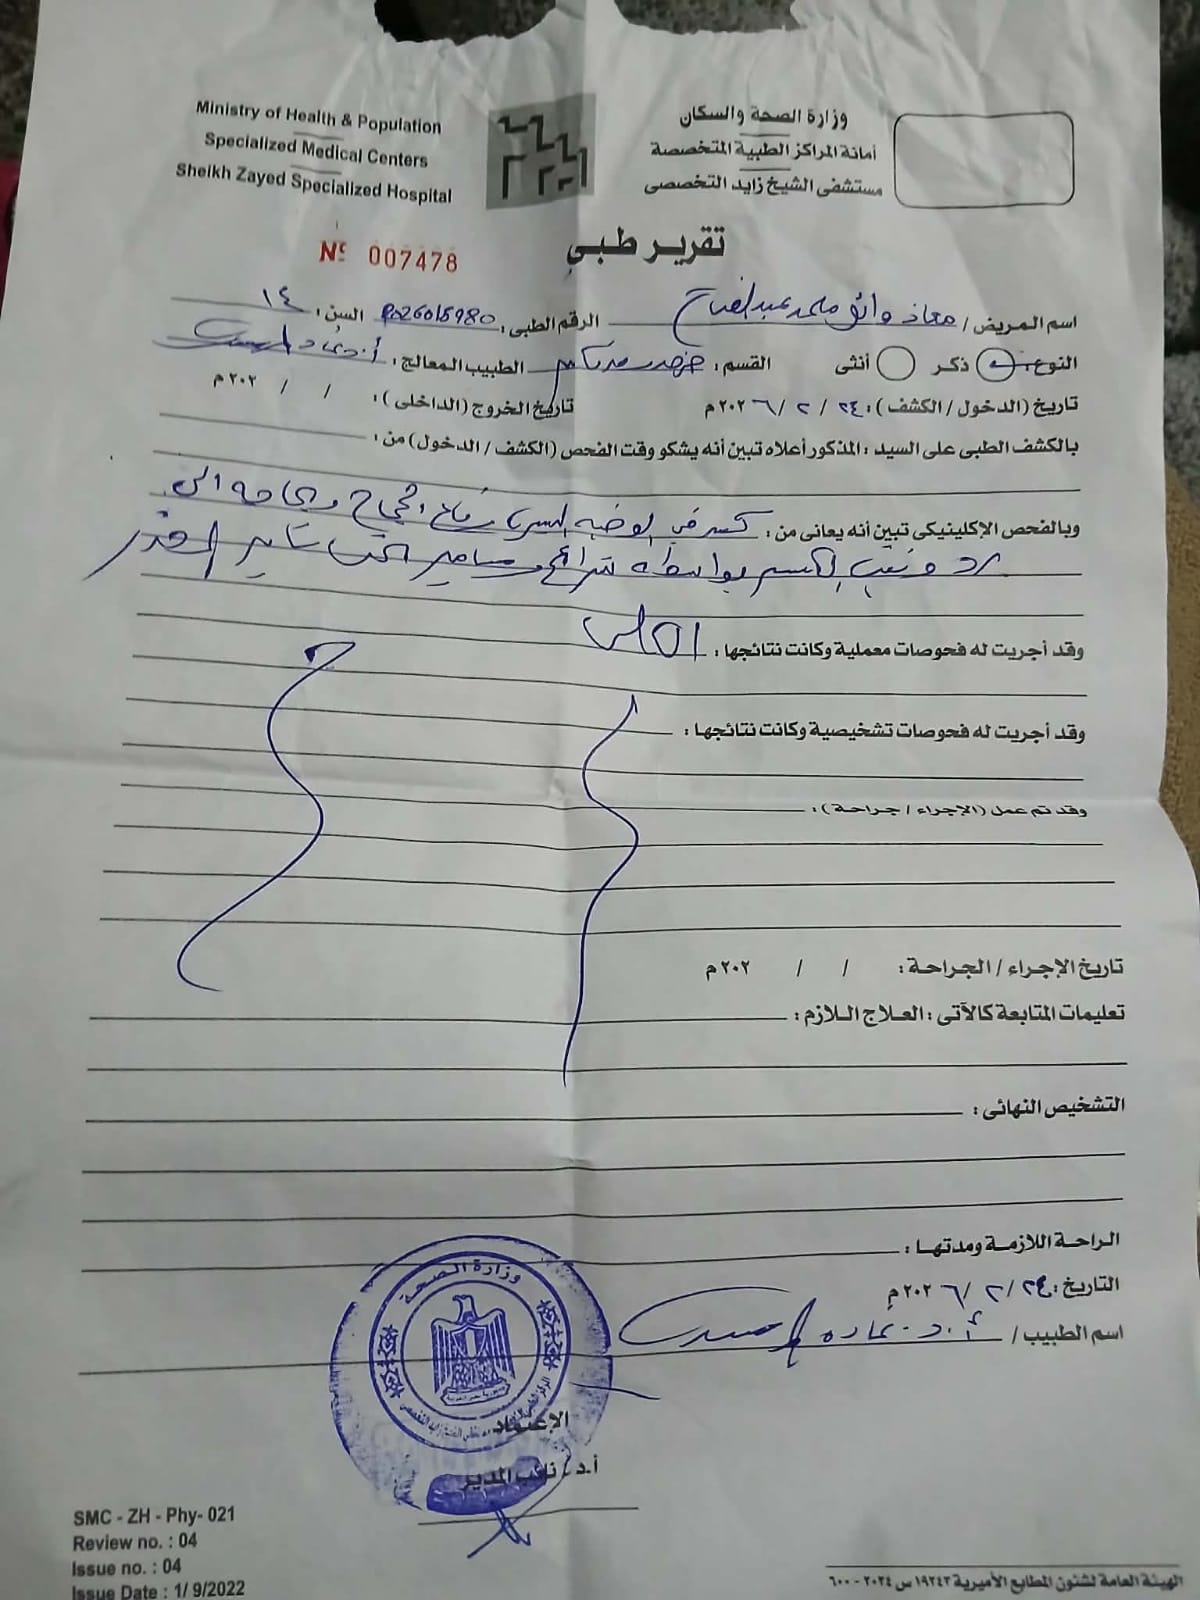 Ministry of Health & Population
Specialized Medical Centers
Sheikh Zayed Specialized Hospital
وزارة الصحة والسكان
أمانة المراكز الطبية المتخصصة
مستشفى الشيخ زايد التخصصى
تقرير طبى
Nº 007478
اسم المريض / معاذ وائل محمد عبد الفتاح الرقم الطبى : السن : ١٤
النوع : ذكر أنثى القسم : الطبيب المعالج : أ.د عماد
تاريخ (الدخول / الكشف) : ٢٤ / ٢ / ٢٠٢٦م تاريخ الخروج (الداخلى) : / / ٢٠٢م
بالكشف الطبى على السيد : المذكور أعلاه تبين أنه يشكو وقت الفحص (الكشف / الدخول) من :
وبالفحص الإكلينيكى تبين أنه يعانى من : كسر في الوجنه اليسرى وقاع الحجاج وبحاجه الى
رد وتثبيت الكسر بواسطه شرائح ومسامير
وقد أجريت له فحوصات معملية وكانت نتائجها :
وقد أجريت له فحوصات تشخيصية وكانت نتائجها :
وقد تم عمل (الإجراء / جراحة) :
تاريخ الإجراء / الجراحة : / / ٢٠٢م
تعليمات المتابعة كالآتى : العلاج اللازم :
التشخيص النهائى :
الراحة اللازمة ومدتها :
التاريخ : ٢٤ / ٢ / ٢٠٢٦م
اسم الطبيب / أ.د.
وزارة الصحة
جمهورية مصر العربية
الإعتماد
أ.د / نائب المدير
SMC - ZH - Phy- 021
Review no. : 04
Issue no. : 04
Issue Date : 1/ 9/2022
الهيئة العامة لشئون المطابع الأميرية ١٩٢٤٣ س ٢٠٢٤ - ٦٠٠